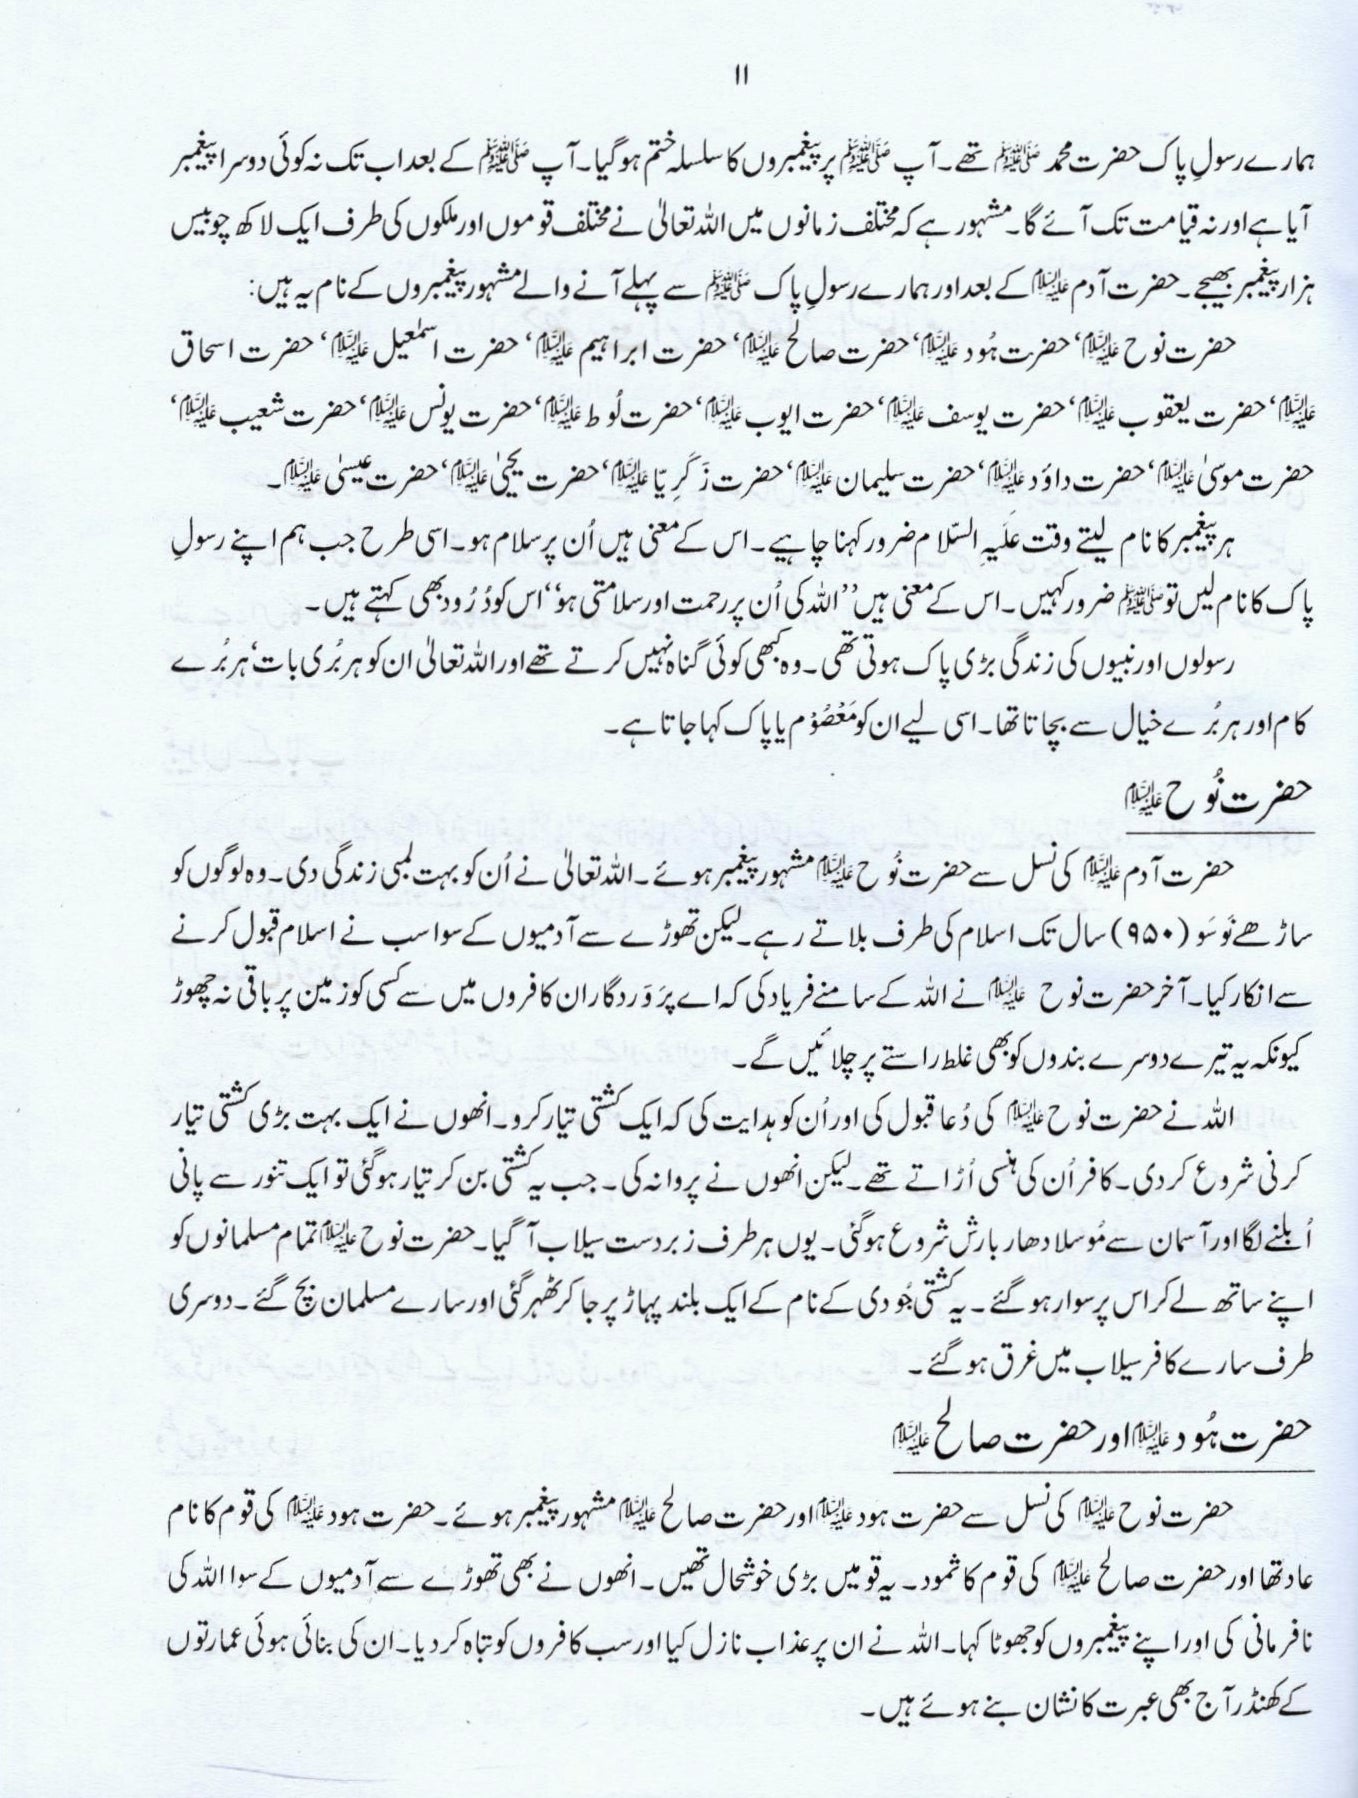 ۱۱
ہمارے رسولِ پاک حضرت محمد ﷺ تھے۔ آپ ﷺ پر پیغمبروں کا سلسلہ ختم ہو گیا۔ آپ ﷺ کے بعد اب تک نہ کوئی دوسرا پیغمبر
آیا ہے اور نہ قیامت تک آئے گا۔ مشہور ہے کہ مختلف زمانوں میں اللہ تعالیٰ نے مختلف قوموں اور ملکوں کی طرف ایک لاکھ چوبیس
ہزار پیغمبر بھیجے۔ حضرت آدم علیہ السلام کے بعد اور ہمارے رسولِ پاک ﷺ سے پہلے آنے والے مشہور پیغمبروں کے نام یہ ہیں:
حضرت نوح علیہ السلام‘ حضرت ہُود علیہ السلام‘ حضرت صالح علیہ السلام‘ حضرت ابراہیم علیہ السلام‘ حضرت اسمٰعیل علیہ السلام‘ حضرت اسحاق
علیہ السلام‘ حضرت یعقوب علیہ السلام‘ حضرت یوسف علیہ السلام‘ حضرت ایوب علیہ السلام‘ حضرت لُوط علیہ السلام‘ حضرت یونس علیہ السلام‘ حضرت شعیب علیہ السلام‘
حضرت موسیٰ علیہ السلام‘ حضرت داؤد علیہ السلام‘ حضرت سلیمان علیہ السلام‘ حضرت زَکَرِیّا علیہ السلام‘ حضرت یحییٰ علیہ السلام‘ حضرت عیسیٰ علیہ السلام۔
ہر پیغمبر کا نام لیتے وقت عَلَیہِ السّلام ضرور کہنا چاہیے۔ اس کے معنی ہیں اُن پر سلام ہو۔ اسی طرح جب ہم اپنے رسولِ
پاک کا نام لیں تو ﷺ ضرور کہیں۔ اس کے معنی ہیں ’’اللہ کی اُن پر رحمت اور سلامتی ہو‘‘ اس کو دُرُود بھی کہتے ہیں۔
رسولوں اور نبیوں کی زندگی بڑی پاک ہوتی تھی۔ وہ کبھی کوئی گناہ نہیں کرتے تھے اور اللہ تعالیٰ ان کو ہر بُری بات‘ ہر بُرے
کام اور ہر بُرے خیال سے بچاتا تھا۔ اسی لیے ان کو مَعْصُوْم یا پاک کہا جاتا ہے۔
حضرت نُوح علیہ السلام
حضرت آدم علیہ السلام کی نسل سے حضرت نُوح علیہ السلام مشہور پیغمبر ہوئے۔ اللہ تعالیٰ نے اُن کو بہت لمبی زندگی دی۔ وہ لوگوں کو
ساڑھے نَو سَو (۹۵۰) سال تک اسلام کی طرف بلاتے رہے۔ لیکن تھوڑے سے آدمیوں کے سوا سب نے اسلام قبول کرنے
سے انکار کیا۔ آخر حضرت نوح علیہ السلام نے اللہ کے سامنے فریاد کی کہ اے پَروَردگار ان کافروں میں سے کسی کو زمین پر باقی نہ چھوڑ
کیونکہ یہ تیرے دوسرے بندوں کو بھی غلط راستے پر چلائیں گے۔
اللہ نے حضرت نوح علیہ السلام کی دُعا قبول کی اور اُن کو ہدایت کی کہ ایک کشتی تیار کرو۔ انھوں نے ایک بہت بڑی کشتی تیار
کرنی شروع کر دی۔ کافر اُن کی ہنسی اُڑاتے تھے۔ لیکن انھوں نے پروا نہ کی۔ جب یہ کشتی بن کر تیار ہو گئی تو ایک تنور سے پانی
اُبلنے لگا اور آسمان سے مُوسلا دھار بارش شروع ہو گئی۔ یوں ہر طرف زبردست سیلاب آ گیا۔ حضرت نوح علیہ السلام تمام مسلمانوں کو
اپنے ساتھ لے کر اس پر سوار ہو گئے۔ یہ کشتی جُودی کے نام کے ایک بلند پہاڑ پر جا کر ٹھہر گئی اور سارے مسلمان بچ گئے۔ دوسری
طرف سارے کافر سیلاب میں غرق ہو گئے۔
حضرت ہُود علیہ السلام اور حضرت صالح علیہ السلام
حضرت نوح علیہ السلام کی نسل سے حضرت ہود علیہ السلام اور حضرت صالح علیہ السلام مشہور پیغمبر ہوئے۔ حضرت ہود علیہ السلام کی قوم کا نام
عاد تھا اور حضرت صالح علیہ السلام کی قوم کا ثمود۔ یہ قومیں بڑی خوشحال تھیں۔ انھوں نے بھی تھوڑے سے آدمیوں کے سوا اللہ کی
نافرمانی کی اور اپنے پیغمبروں کو جھوٹا کہا۔ اللہ نے ان پر عذاب نازل کیا اور سب کافروں کو تباہ کر دیا۔ ان کی بنائی ہوئی عمارتوں
کے کھنڈر آج بھی عبرت کا نشان بنے ہوئے ہیں۔